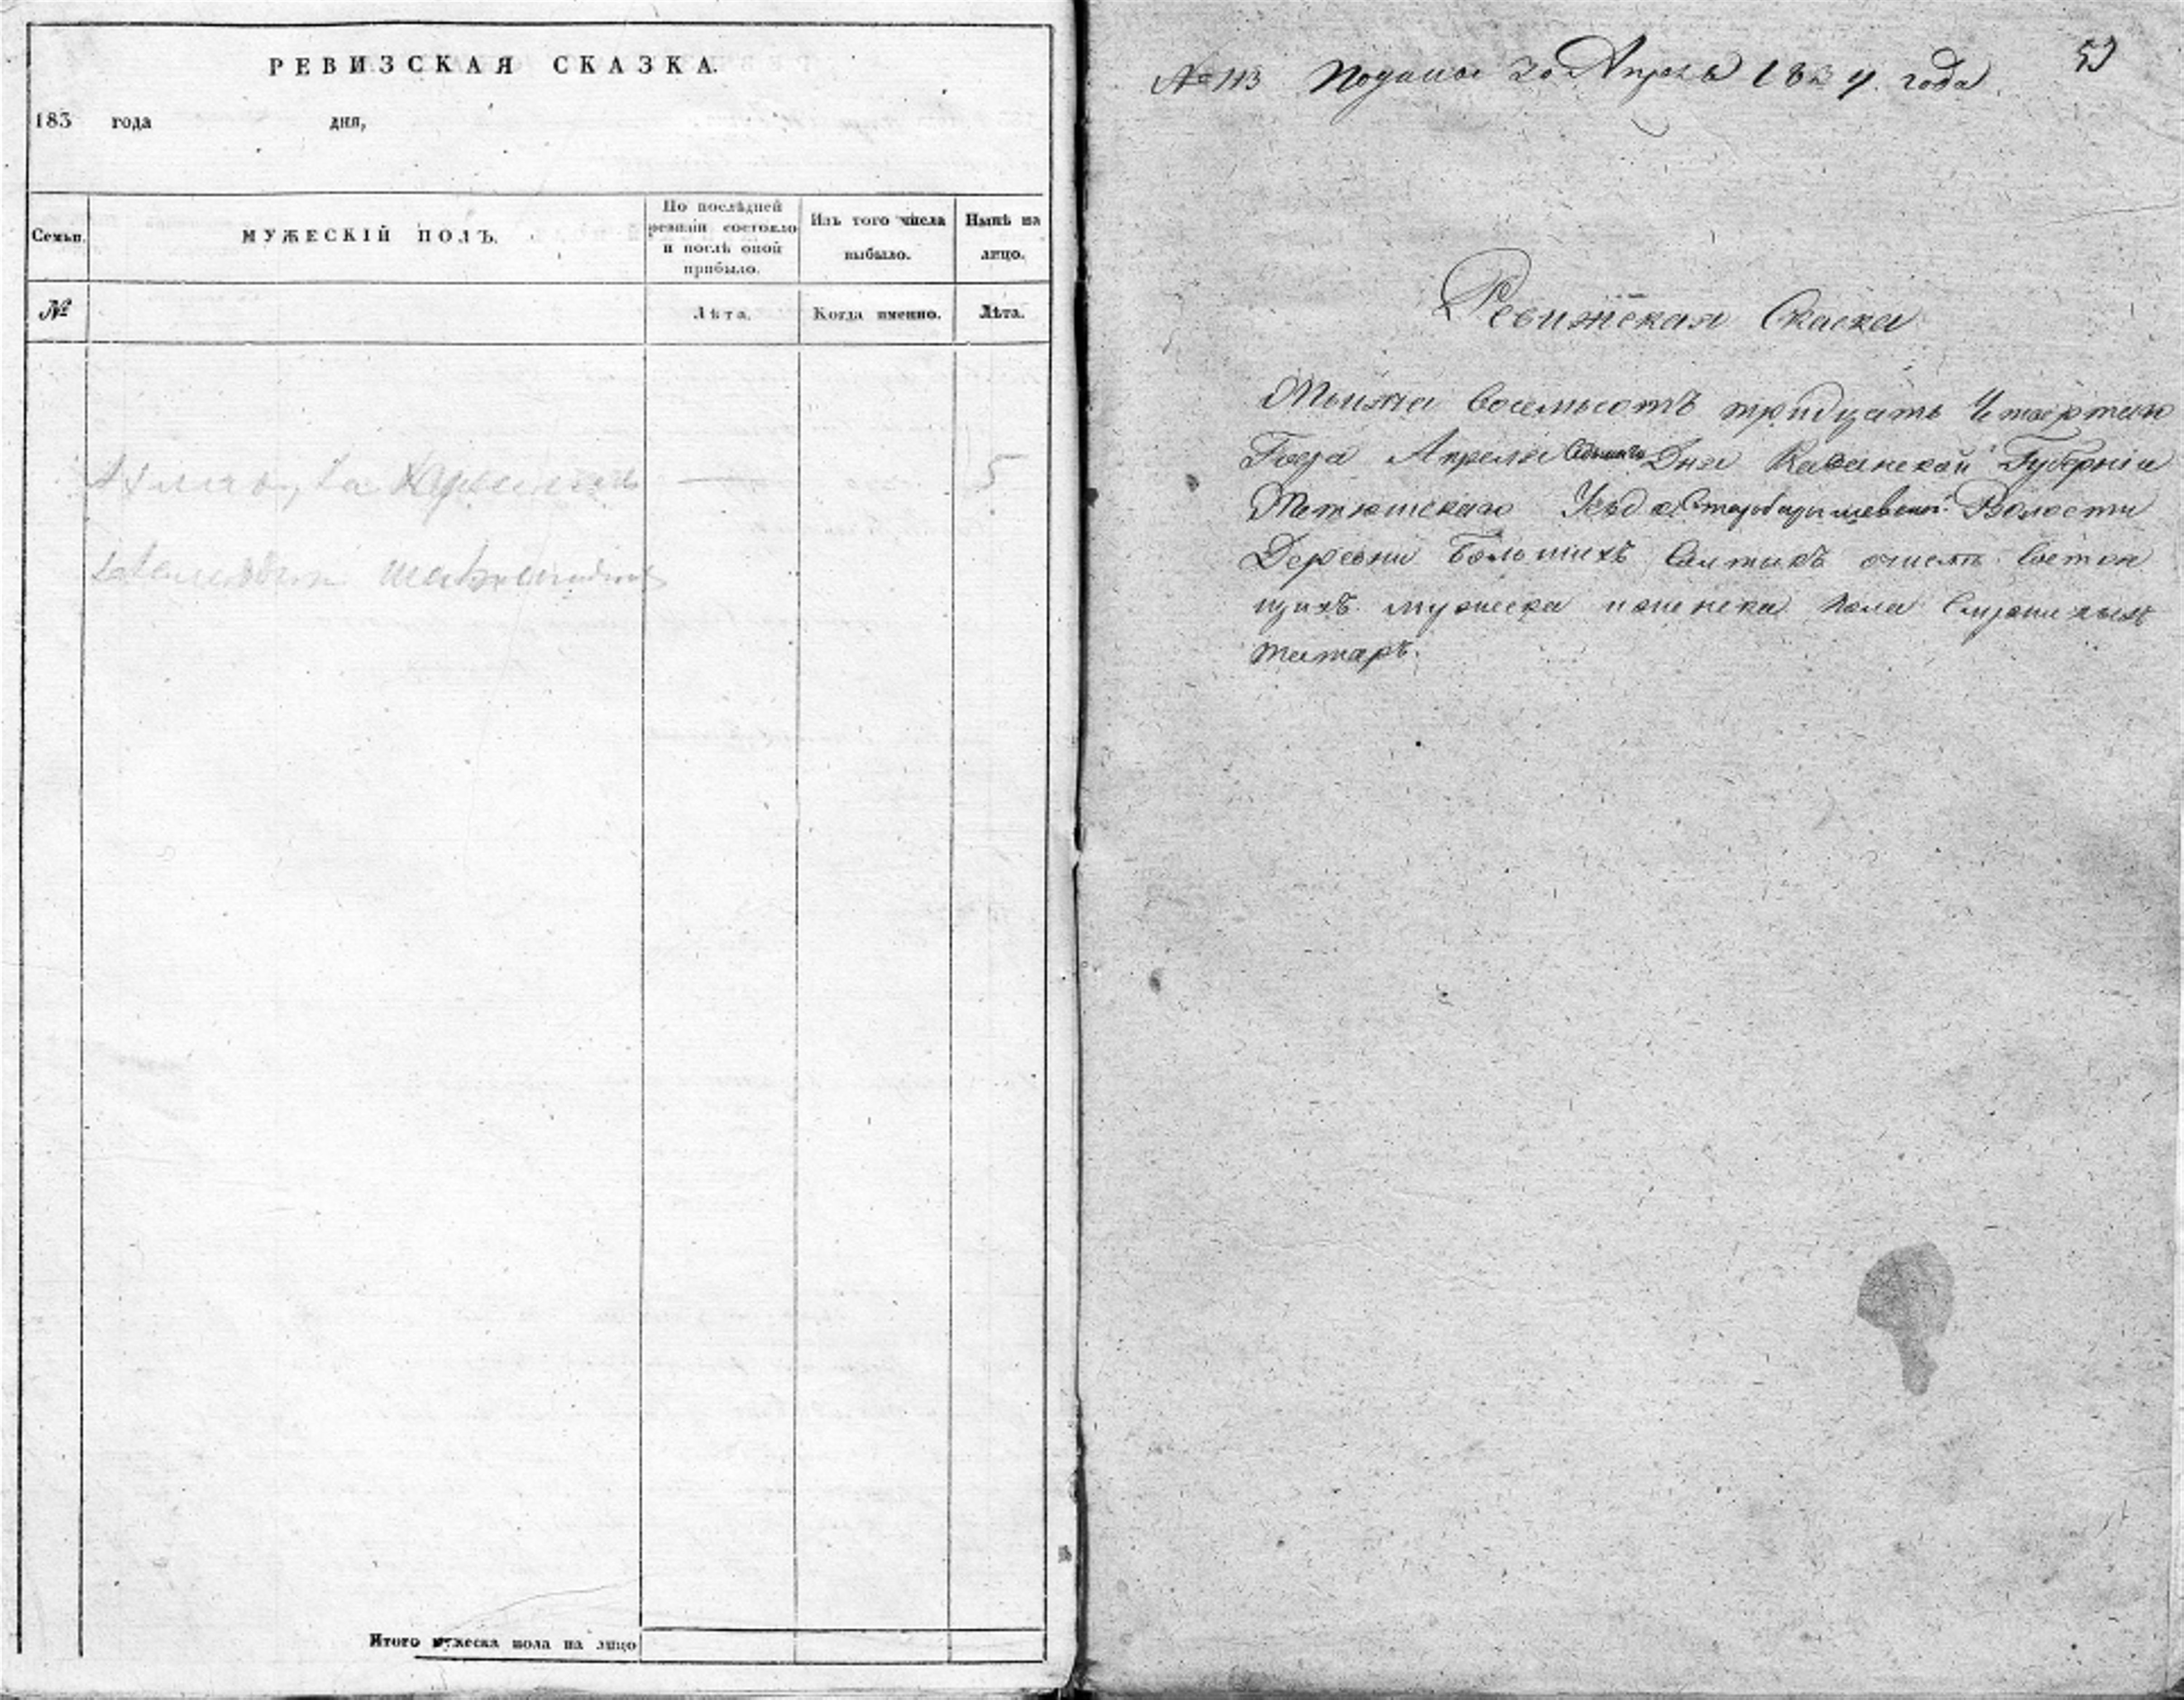 РЕВИЗСКАЯ СКАЗКА.
183 года дня,
Семьи.
МУЖЕСКІЙ ПОЛЪ.
По послѣдней
ревизіи состояло
и послѣ оной
прибыло.
Изъ того числа
выбыло.
Нынѣ на
лицо.
№
Лѣта.
Когда именно.
Лѣта.
5
Итого мужеска пола на лицо
№ 113 Подана 20 Апреля 1834 года
Ревижская Скаска
Тысяча восемьсотъ тридцать Четвертаго
Года Апреля Седьмаго Дня Казанской Губерніи
Тетюшскаго Уезда Старобарышевской Волости
Деревни Большихъ Салтыкъ о
мужеска и женска пола Служилыхъ
татаръ.